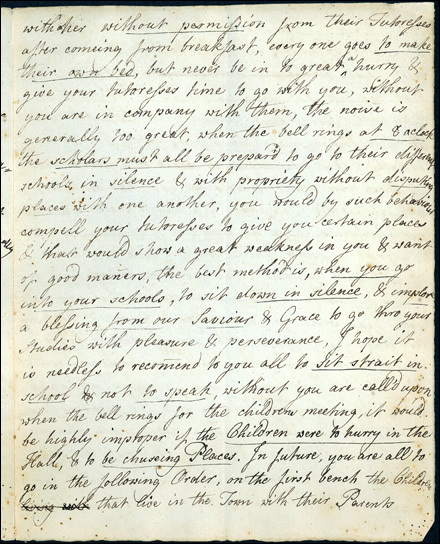 with other without permission from their Tutoresses
after comeing from breakfast, every one goes to make
their own bed, but never be in to great a hurry &
give your tutoresses time to go with you, without
you are in company with them, the noise is
generally too great, when the bell rings at 8 aclock
the scholars must all be prepar'd to go to their different
schools, in silence & with propriety without disputing
places with one another, you would by such behaviour
compell your tutoresses to give you certain places
& that would show a great weakness in you & want
of good mañers, the best method is, when you go
into your schools, to sit down in silence, & implore
a blessing from our Saviour & Grace to go thro your
studies with pleasure & perseverance, I hope it
is needless to recom̃end to you all to sit strait in
school & not to speak without you are call'd upon
when the bell rings for the childrens meeting, it would
be highly improper if the Children were to hurry in the
Hall, & to be chuseing Places. In future, you are all to
go in the following Order, on the first bench the Children
that live in the Town with their Parents